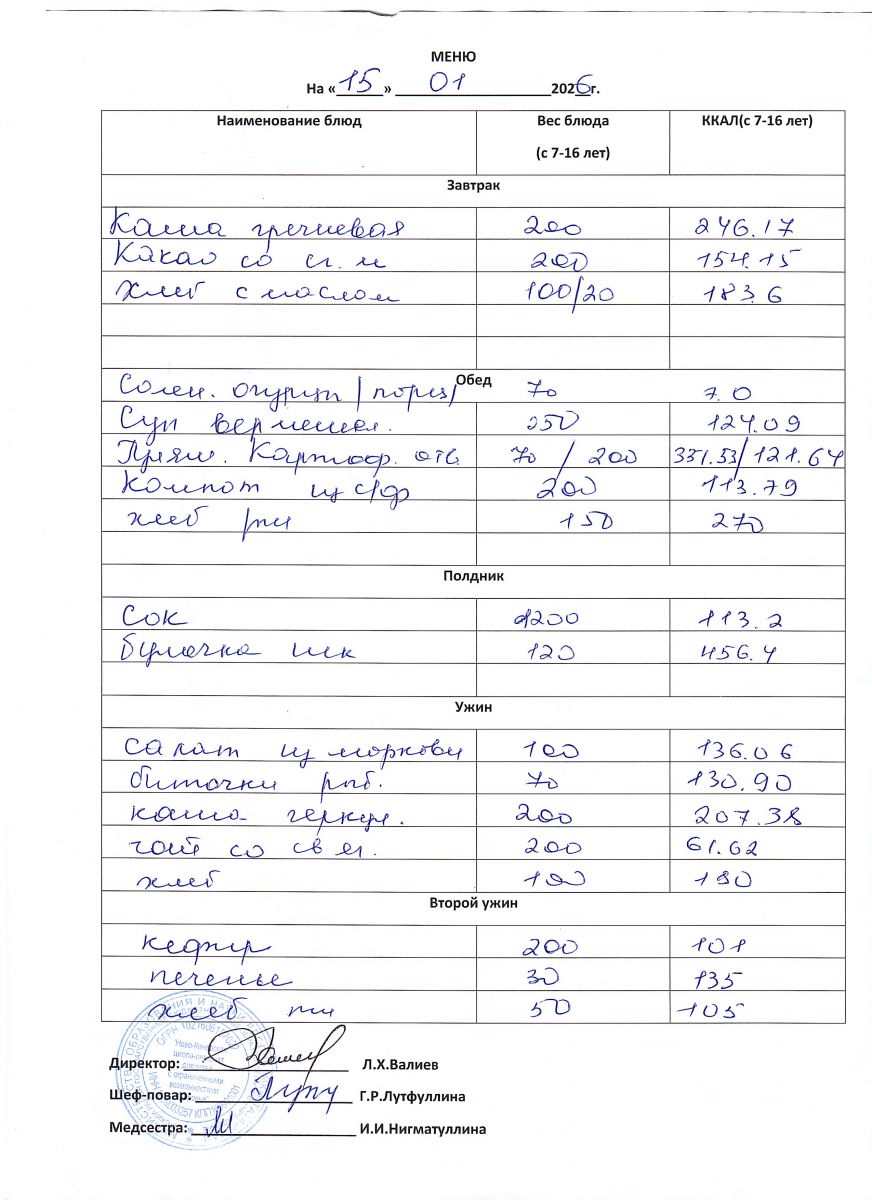 МЕНЮ
На «15» 01 2026г.
Наименование блюд Вес блюда (с 7-16 лет) ККАЛ(с 7-16 лет)
Завтрак
Каша гречневая 200 246.17
Какао со сг. м 200 154.15
Хлеб с маслом 100/20 183.6
Обед
Солен. огурцы /порц/ 70 7.0
Суп вермешел. 250 124.09
Картоф. отв. 70 / 200 331.53/121.64
Компот из с/ф 200 113.79
хлеб рж 150 270
Полдник
Сок 200 113.2
булочка 120 456.4
Ужин
салат из моркови 100 136.06
биточки рыб. 70 130.90
каша геркул. 200 207.38
чай со 200 61.62
хлеб 100 180
Второй ужин
кефир 200 101
печенье 30 135
хлеб 50 105
Директор: Л.Х.Валиев
Шеф-повар: Г.Р.Лутфуллина
Медсестра: И.И.Нигматуллина